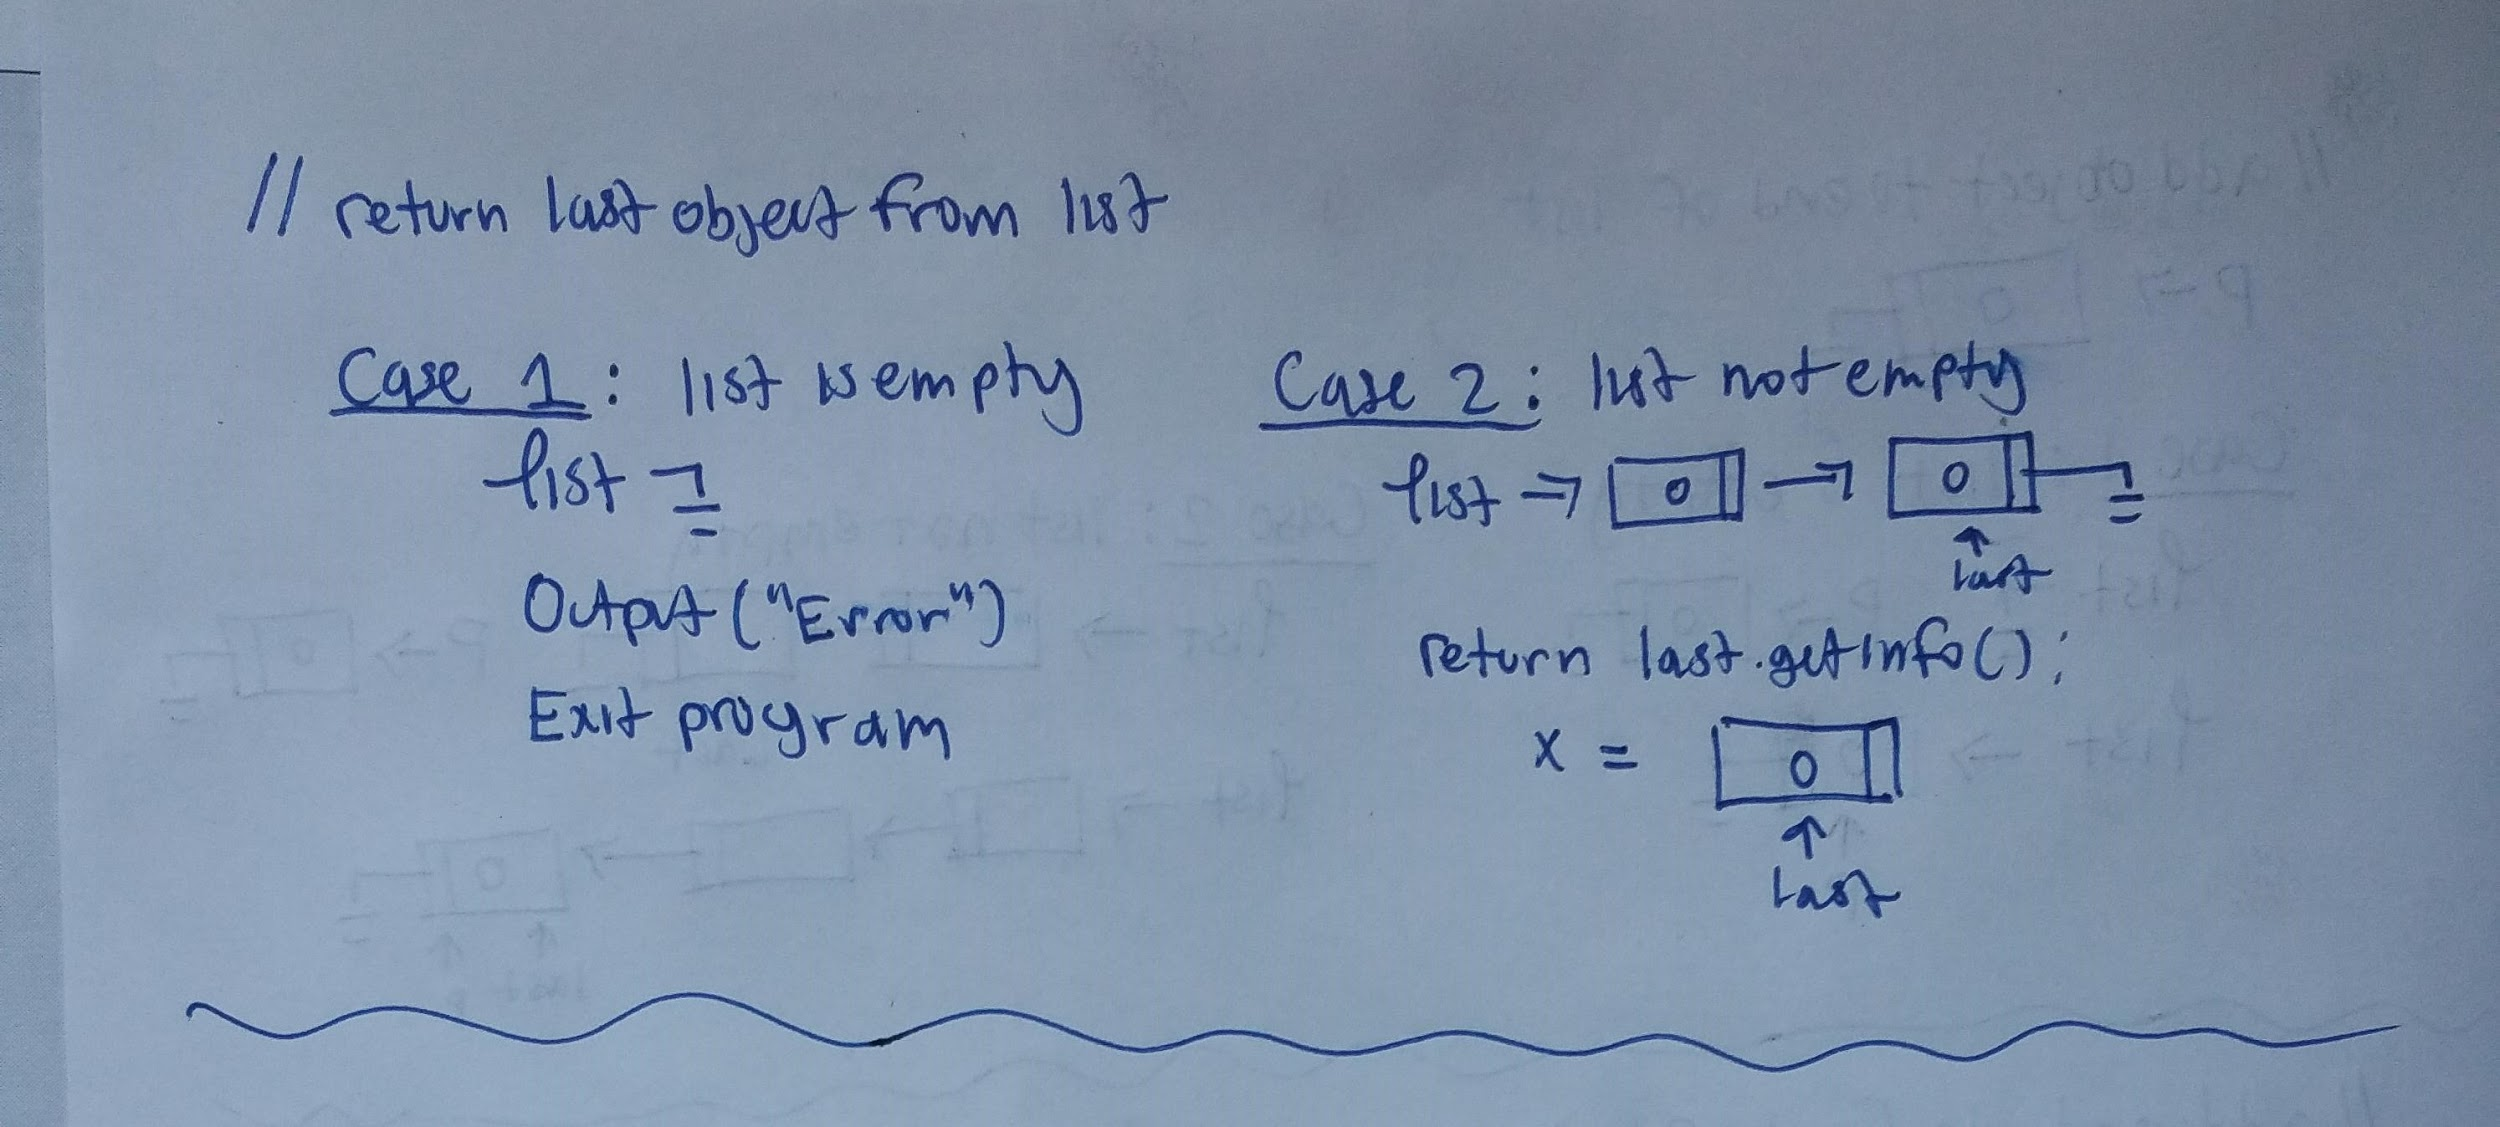 // return last object from list
Case 1: list is empty
list
Output ("Error")
Exit program
Case 2: list not empty
list → O → O
last
return last.getInfo();
x = O
last